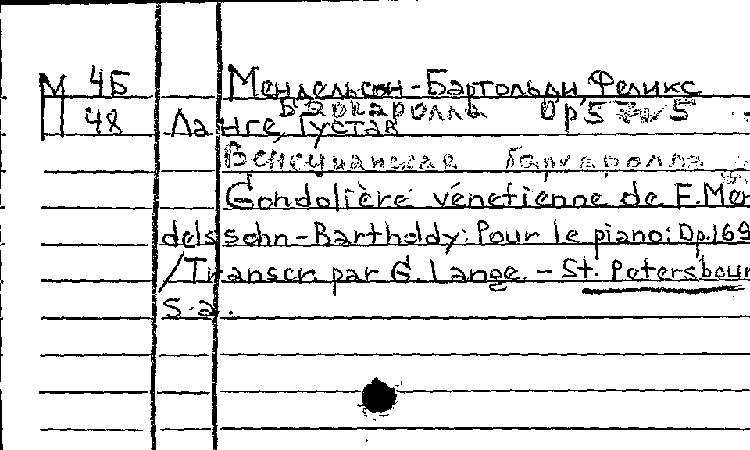 М 4Б Мендельсон-Бартольди, Феликс
Баркаролла Op 5 № 5
П 48 Ланге, Густав
Венецианская баркаролла
Gondolière vénetienne de F. Men
delssohn-Bartholdy: Pour le piano: Op. 169
/Transcr. par G. Lange. - St. Petersbour
s.a.